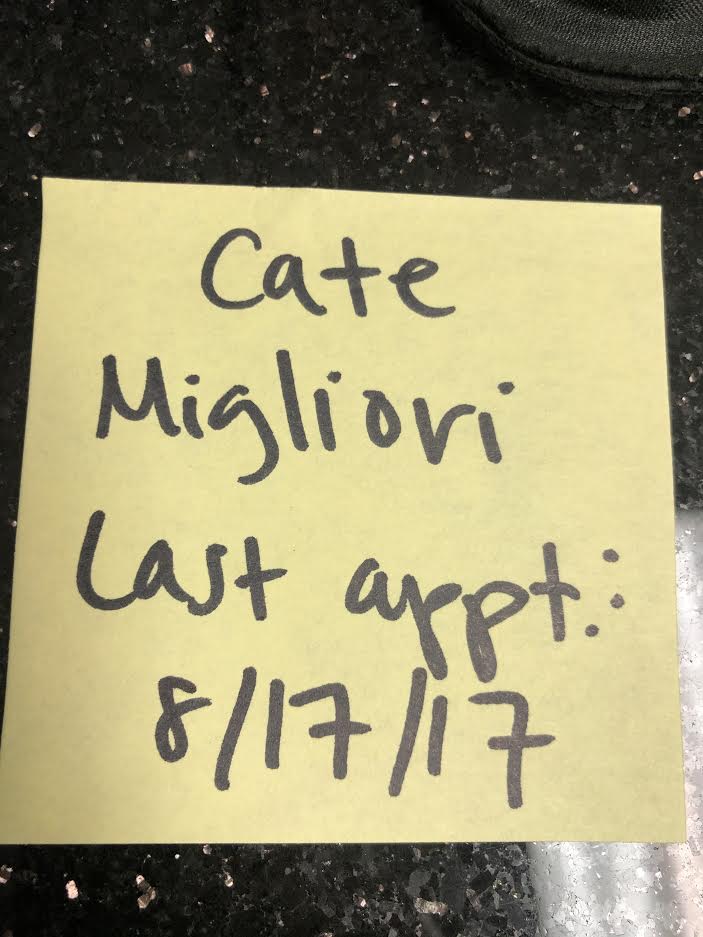 Cate
Migliori
Last appt.:
8/17/17